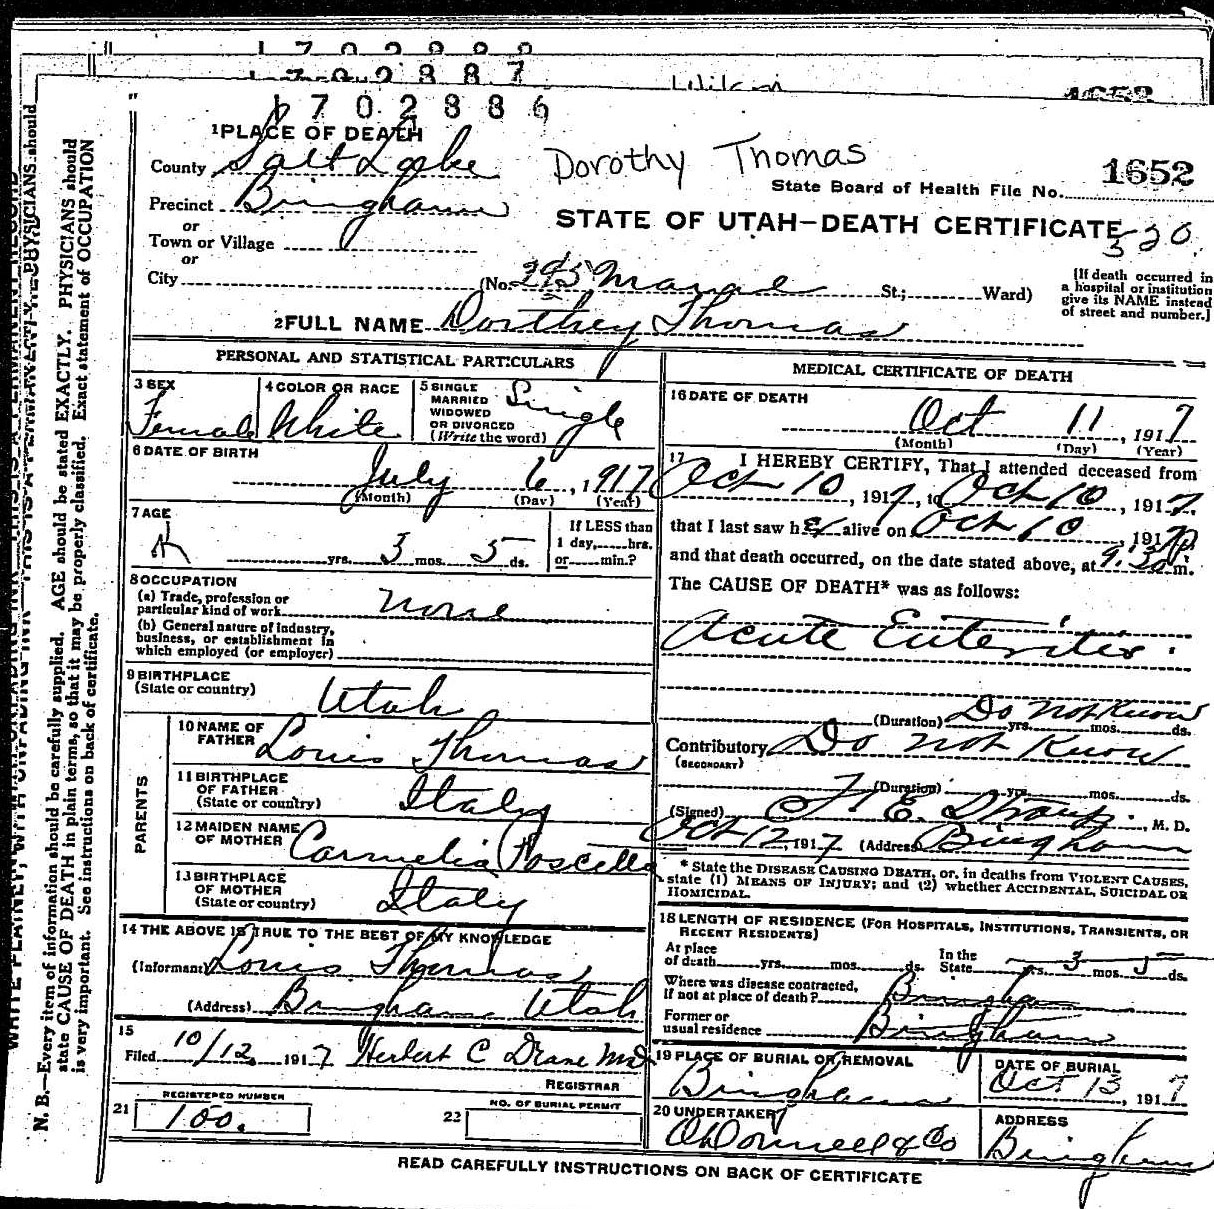 1702888
1702887
1652
1702886
1 PLACE OF DEATH
County Salt Lake
Dorothy Thomas
State Board of Health File No. 1652
Precinct Bingham
or
STATE OF UTAH—DEATH CERTIFICATE
520
Town or Village
or
City (No. 245 St.; Ward)
[If death occurred in a hospital or institution give its NAME instead of street and number.]
2 FULL NAME Dorthey Thomas
PERSONAL AND STATISTICAL PARTICULARS
3 SEX
Female
4 COLOR OR RACE
White
5 SINGLE MARRIED WIDOWED OR DIVORCED (Write the word)
Single
6 DATE OF BIRTH
July 6, 1917
(Month) (Day) (Year)
7 AGE
yrs. 3 mos. 5 ds.
If LESS than 1 day, hrs. or min.?
8 OCCUPATION
(a) Trade, profession or particular kind of work None
(b) General nature of industry, business, or establishment in which employed (or employer)
9 BIRTHPLACE (State or country)
Utah
PARENTS
10 NAME OF FATHER Louis Thomas
11 BIRTHPLACE OF FATHER (State or country) Italy
12 MAIDEN NAME OF MOTHER Carmelia Poscella
13 BIRTHPLACE OF MOTHER (State or country) Italy
14 THE ABOVE IS TRUE TO THE BEST OF MY KNOWLEDGE
(Informant) Louis Thomas
(Address) Bingham Utah
15
Filed 10/12 1917 Herbert C Drane Md
REGISTRAR
REGISTERED NUMBER
21 100.
NO. OF BURIAL PERMIT
22
MEDICAL CERTIFICATE OF DEATH
16 DATE OF DEATH
Oct 11, 1917
(Month) (Day) (Year)
17 I HEREBY CERTIFY, That I attended deceased from
Oct 10, 1917, to Oct 10, 1917.
that I last saw her alive on Oct 10 1917,
and that death occurred, on the date stated above, at 9.30 P. m.
The CAUSE OF DEATH* was as follows:
Acute Enteritis.
(Duration) Do not Know yrs. mos. ds.
Contributory Do not Know
(SECONDARY)
(Duration) yrs. mos. ds.
(Signed) F. E. Straup, M. D.
Oct 12, 1917 (Address) Bingham
* State the DISEASE CAUSING DEATH, or, in deaths from VIOLENT CAUSES, state (1) MEANS OF INJURY; and (2) whether ACCIDENTAL, SUICIDAL OR HOMICIDAL.
18 LENGTH OF RESIDENCE (FOR HOSPITALS, INSTITUTIONS, TRANSIENTS, OR RECENT RESIDENTS)
At place of death yrs. mos. ds. In the State yrs. 3 mos. 5 ds.
Where was disease contracted, if not at place of death? Bingham
Former or usual residence Bingham
19 PLACE OF BURIAL OR REMOVAL
Bingham
DATE OF BURIAL
Oct 13, 1917
20 UNDERTAKER
O'Donnell & Co
ADDRESS
Bingham
READ CAREFULLY INSTRUCTIONS ON BACK OF CERTIFICATE
N. B.—Every item of information should be carefully supplied. AGE should be stated EXACTLY. PHYSICIANS should
state CAUSE OF DEATH in plain terms, so that it may be properly classified. Exact statement of OCCUPATION
is very important. See instructions on back of certificate.